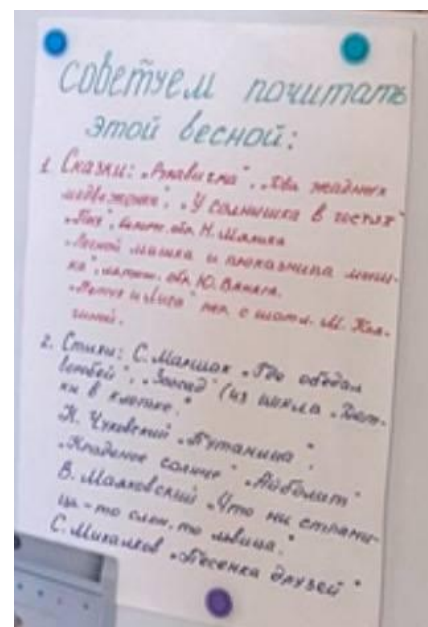 советуем почитать
этой весной:
1. Сказки: „Рукавичка", „Два жадных
медвежонка", „У солнышка в гостях"
обр. Н. Мялика
„Лесной мишка и проказница мыш-
ка", латыш. обр. Ю. Ванага.
„Петух и лиса" пер. с шотл. М. Кля-
гиной.
2. Стихи: С. Маршак „Где обедал
воробей", „Зоосад" (из цикла „Дет-
ки в клетке."
К. Чуковский „Путаница",
„Краденое солнце" „Айболит"
В. Маяковский „Что ни страни-
ца - то слон, то львица."
С. Михалков „Песенка друзей"